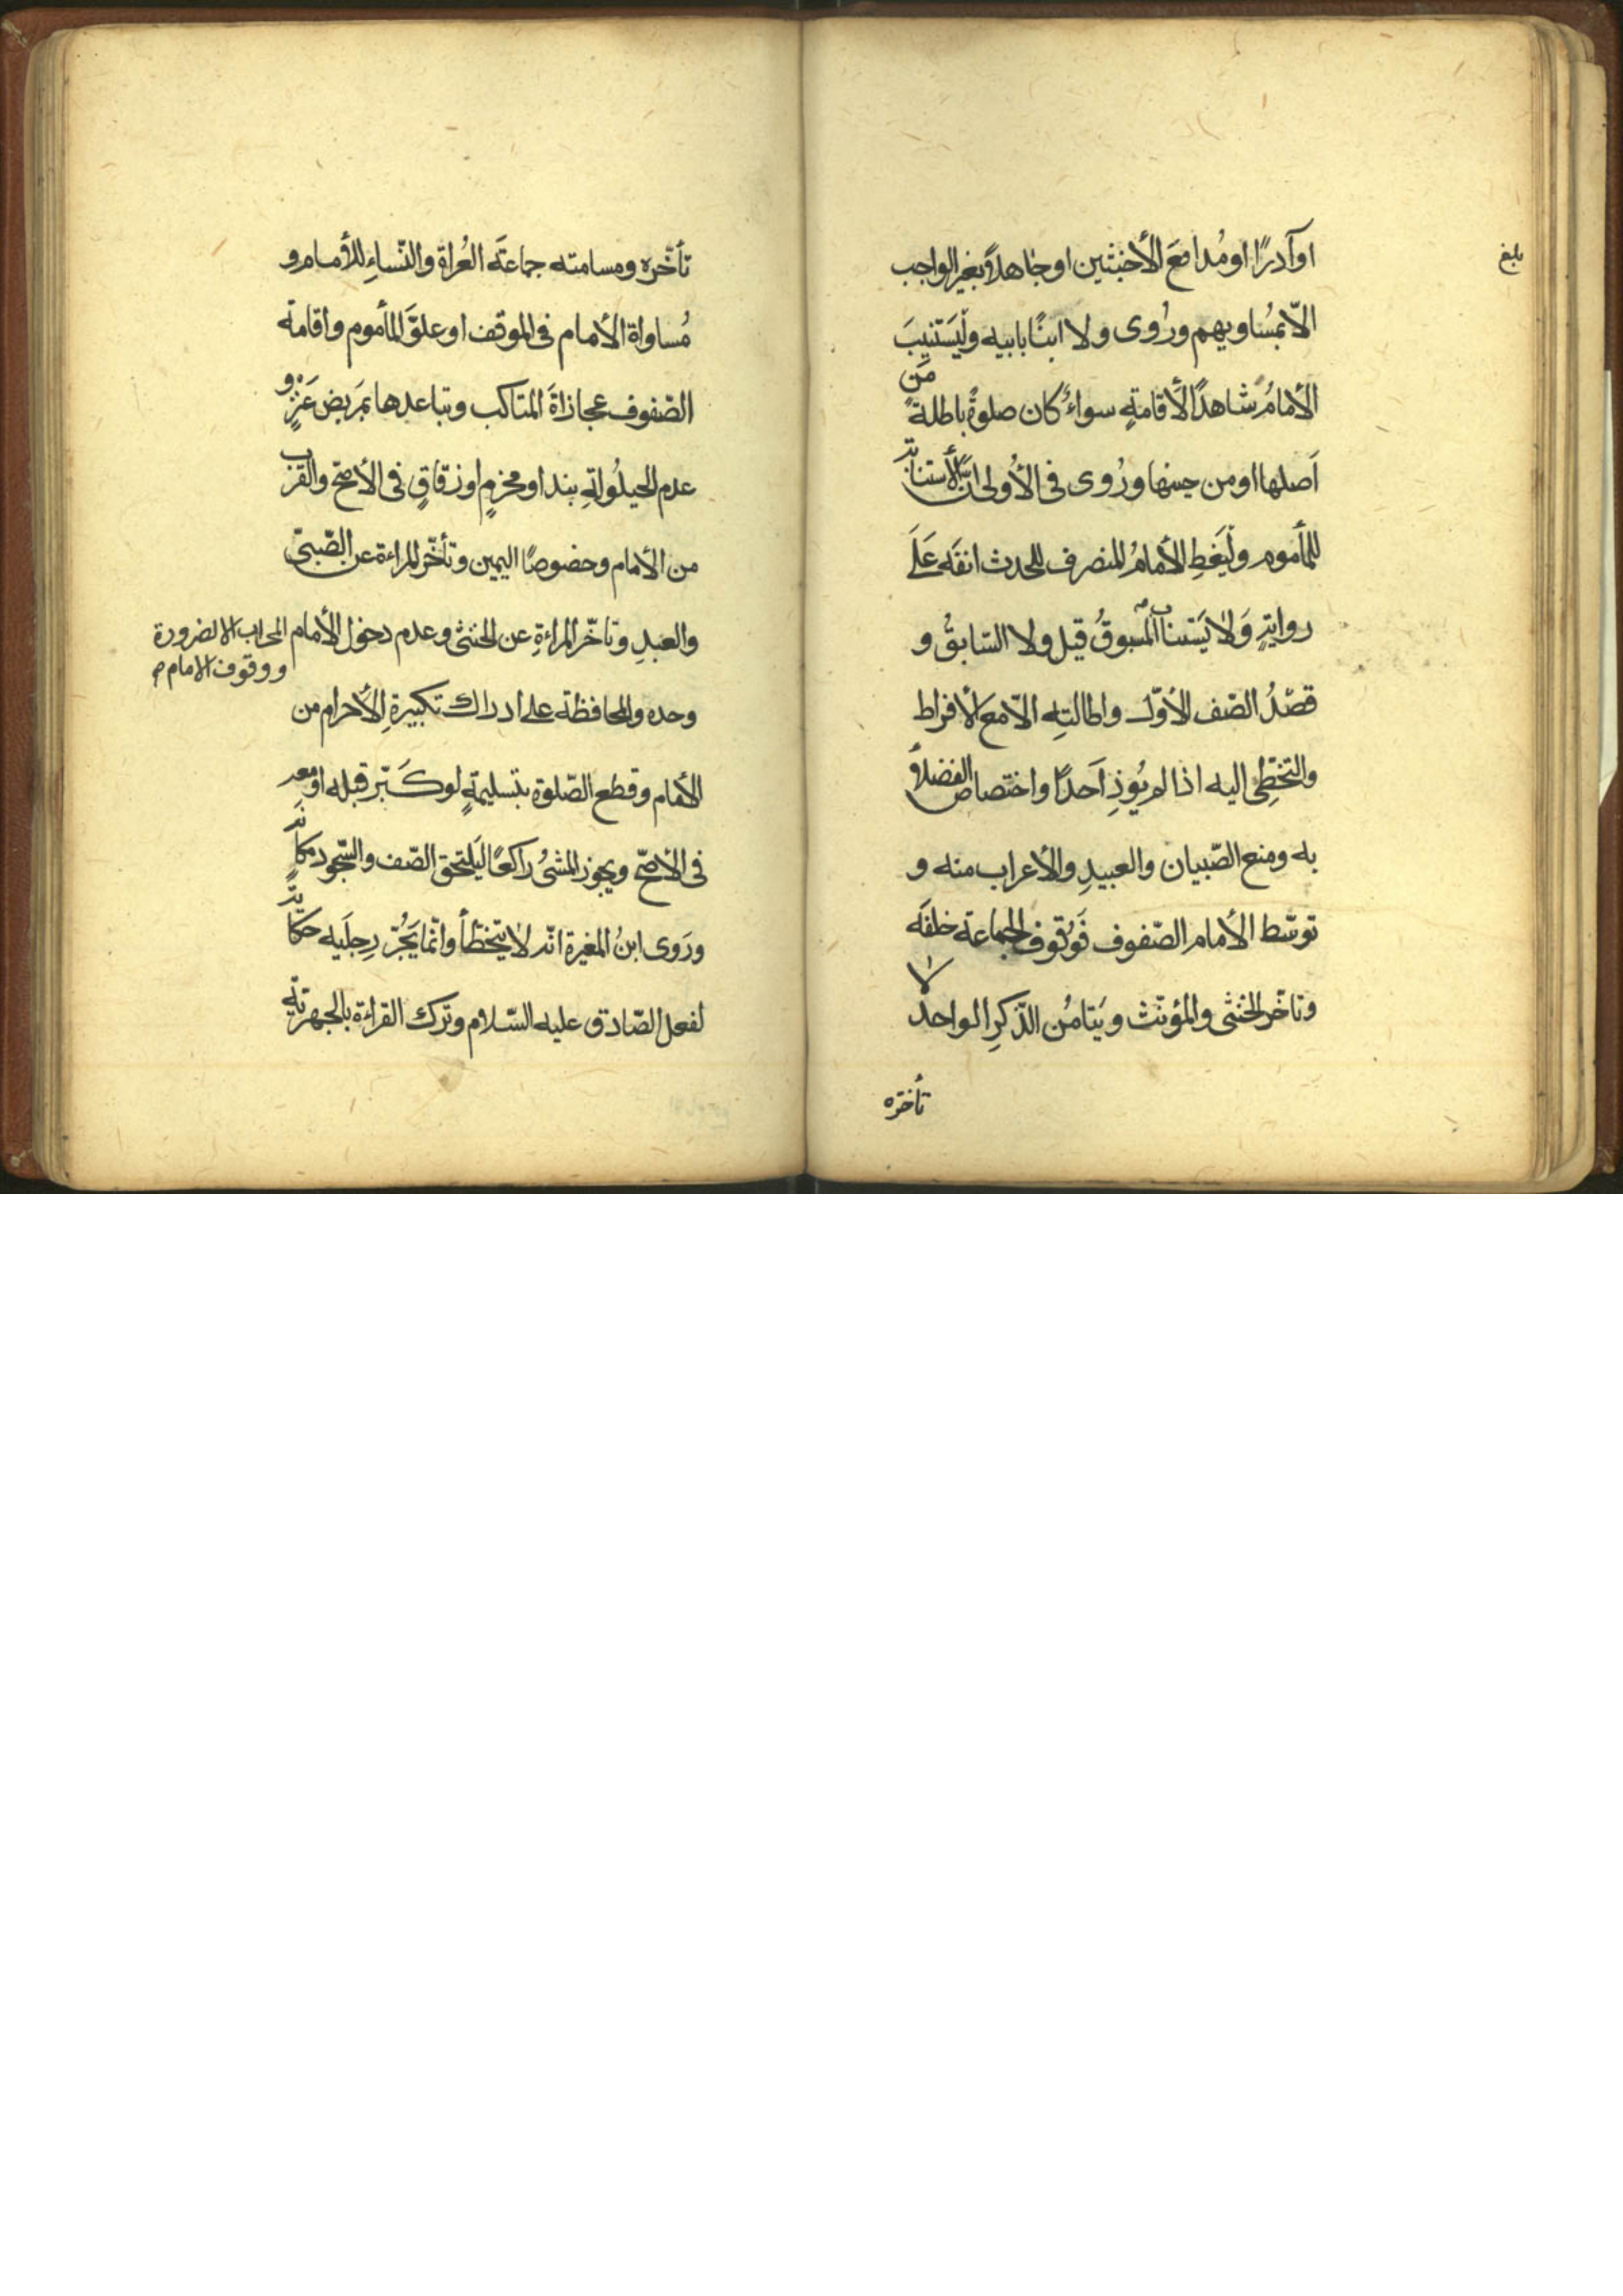 بلغ
او آدرًا او مُدافعَ الأخبثین او جاهدًا بغیر الواجب
الّا بمُساویهم ورُوی ولا ابنًا بابیه ولْیَستنیبَ
الأمامُ شاهدًا الأقامةِ سواءٌ کان صلوةُ باطلةً
مَن
اَصلها او من حینها ورُوی فی الأولی انّ الأستنابة
للمأموم ولْیَغطِ الأمامُ المنصرف للحدث انفَه عَلَی
روایةٍ وَلا یَستناب المسبوقُ قیل ولا السّابقُ و
قصدُ الصّف الأوّل واطالتِه الّا مع الأفراط
والتخطِّی الیه اذا لم یُوذِ اَحدًا واختصاص الفضلاءِ
به ومنع الصّبیان والعبیدِ والأعراب منه و
توسّط الأمام الصّفوف فَوُقوف الجماعة خلفَه
وتاخّر الخنثی والمؤنّث ویَتامُن الذّکرِ الواحد لا
تأخّره
تأخّره ومسامته جماعَةَ العُراة والنّساءِ للأمام و
مُساواة الأمام فی الموقف او علوَّ المأموم واقامة
الصّفوف بمحاذاةَ المناکب وتباعدها بمَربض عَنزٍ و
عدم الحیلُولةِ بنهر او مخرمٍ او زقاقٍ فی الأصحّ والقرب
من الأمام وخصوصًا الیمین وتأخّر المراءة عن الصّبیّ
والعبدِ وتاخّر المراءةِ عن الخنثی وعدم دخول الأمام المحراب الا لضرورة
ووقوف الامام م
وحده والمحافظة علی ادراك تکبیرةِ الأحرام من
الأمام وقطع الصّلوة بتسلیمةٍ لو کَبّر قبله او معه
فی الأصحّ ویجوز المشیُ راکعًا لیَلتحق الصّف والسّجود مکانَه
ورَوی ابنُ المغیرة انّه لا یتخطّأ وانّما یَجُرّ رِجلَیه حکایةً
لفعل الصّادق علیه السّلام وترك القراءة بالجهریّة